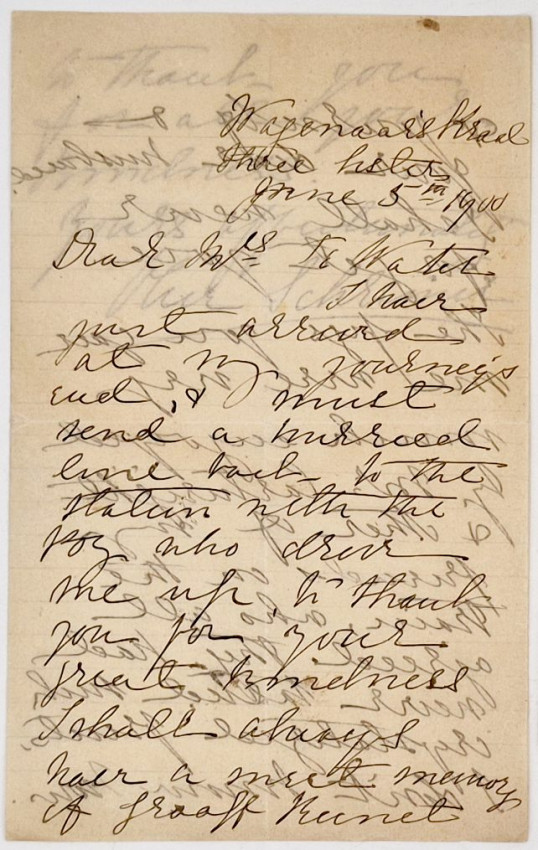 Wagenaar's Kraal
Three Sisters
June 5th 1900
Dear Mrs Te Water
I have
just arrived
at my journeys
end, & must
send a hurried
line back to the
station with the
boy who drove
me up, to thank
you for your
great kindness
I shall always
have a sweet memory
of Graaff Reinet